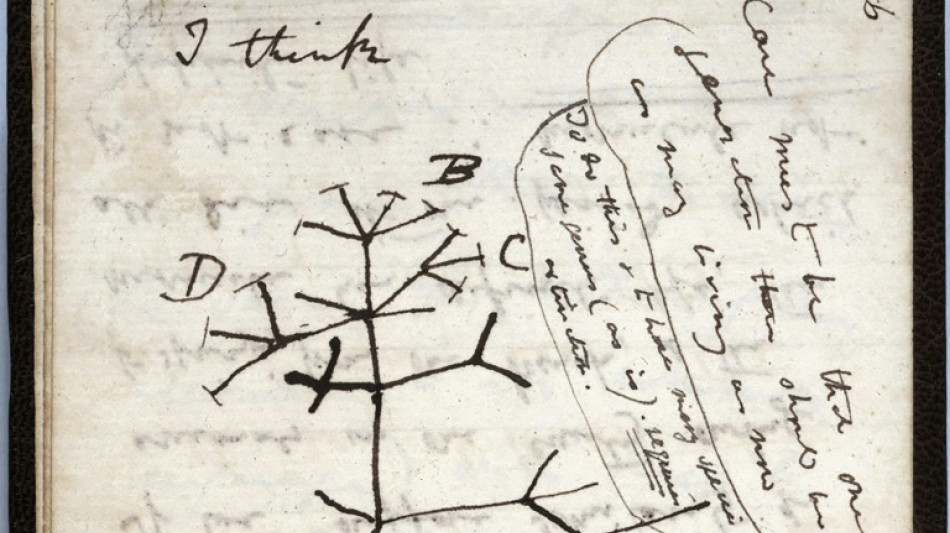 I think
Case must be that one
generation then should be
as many living as now
To do this & to have many species
in same genus (as is). requires
extinction.
B
C
D